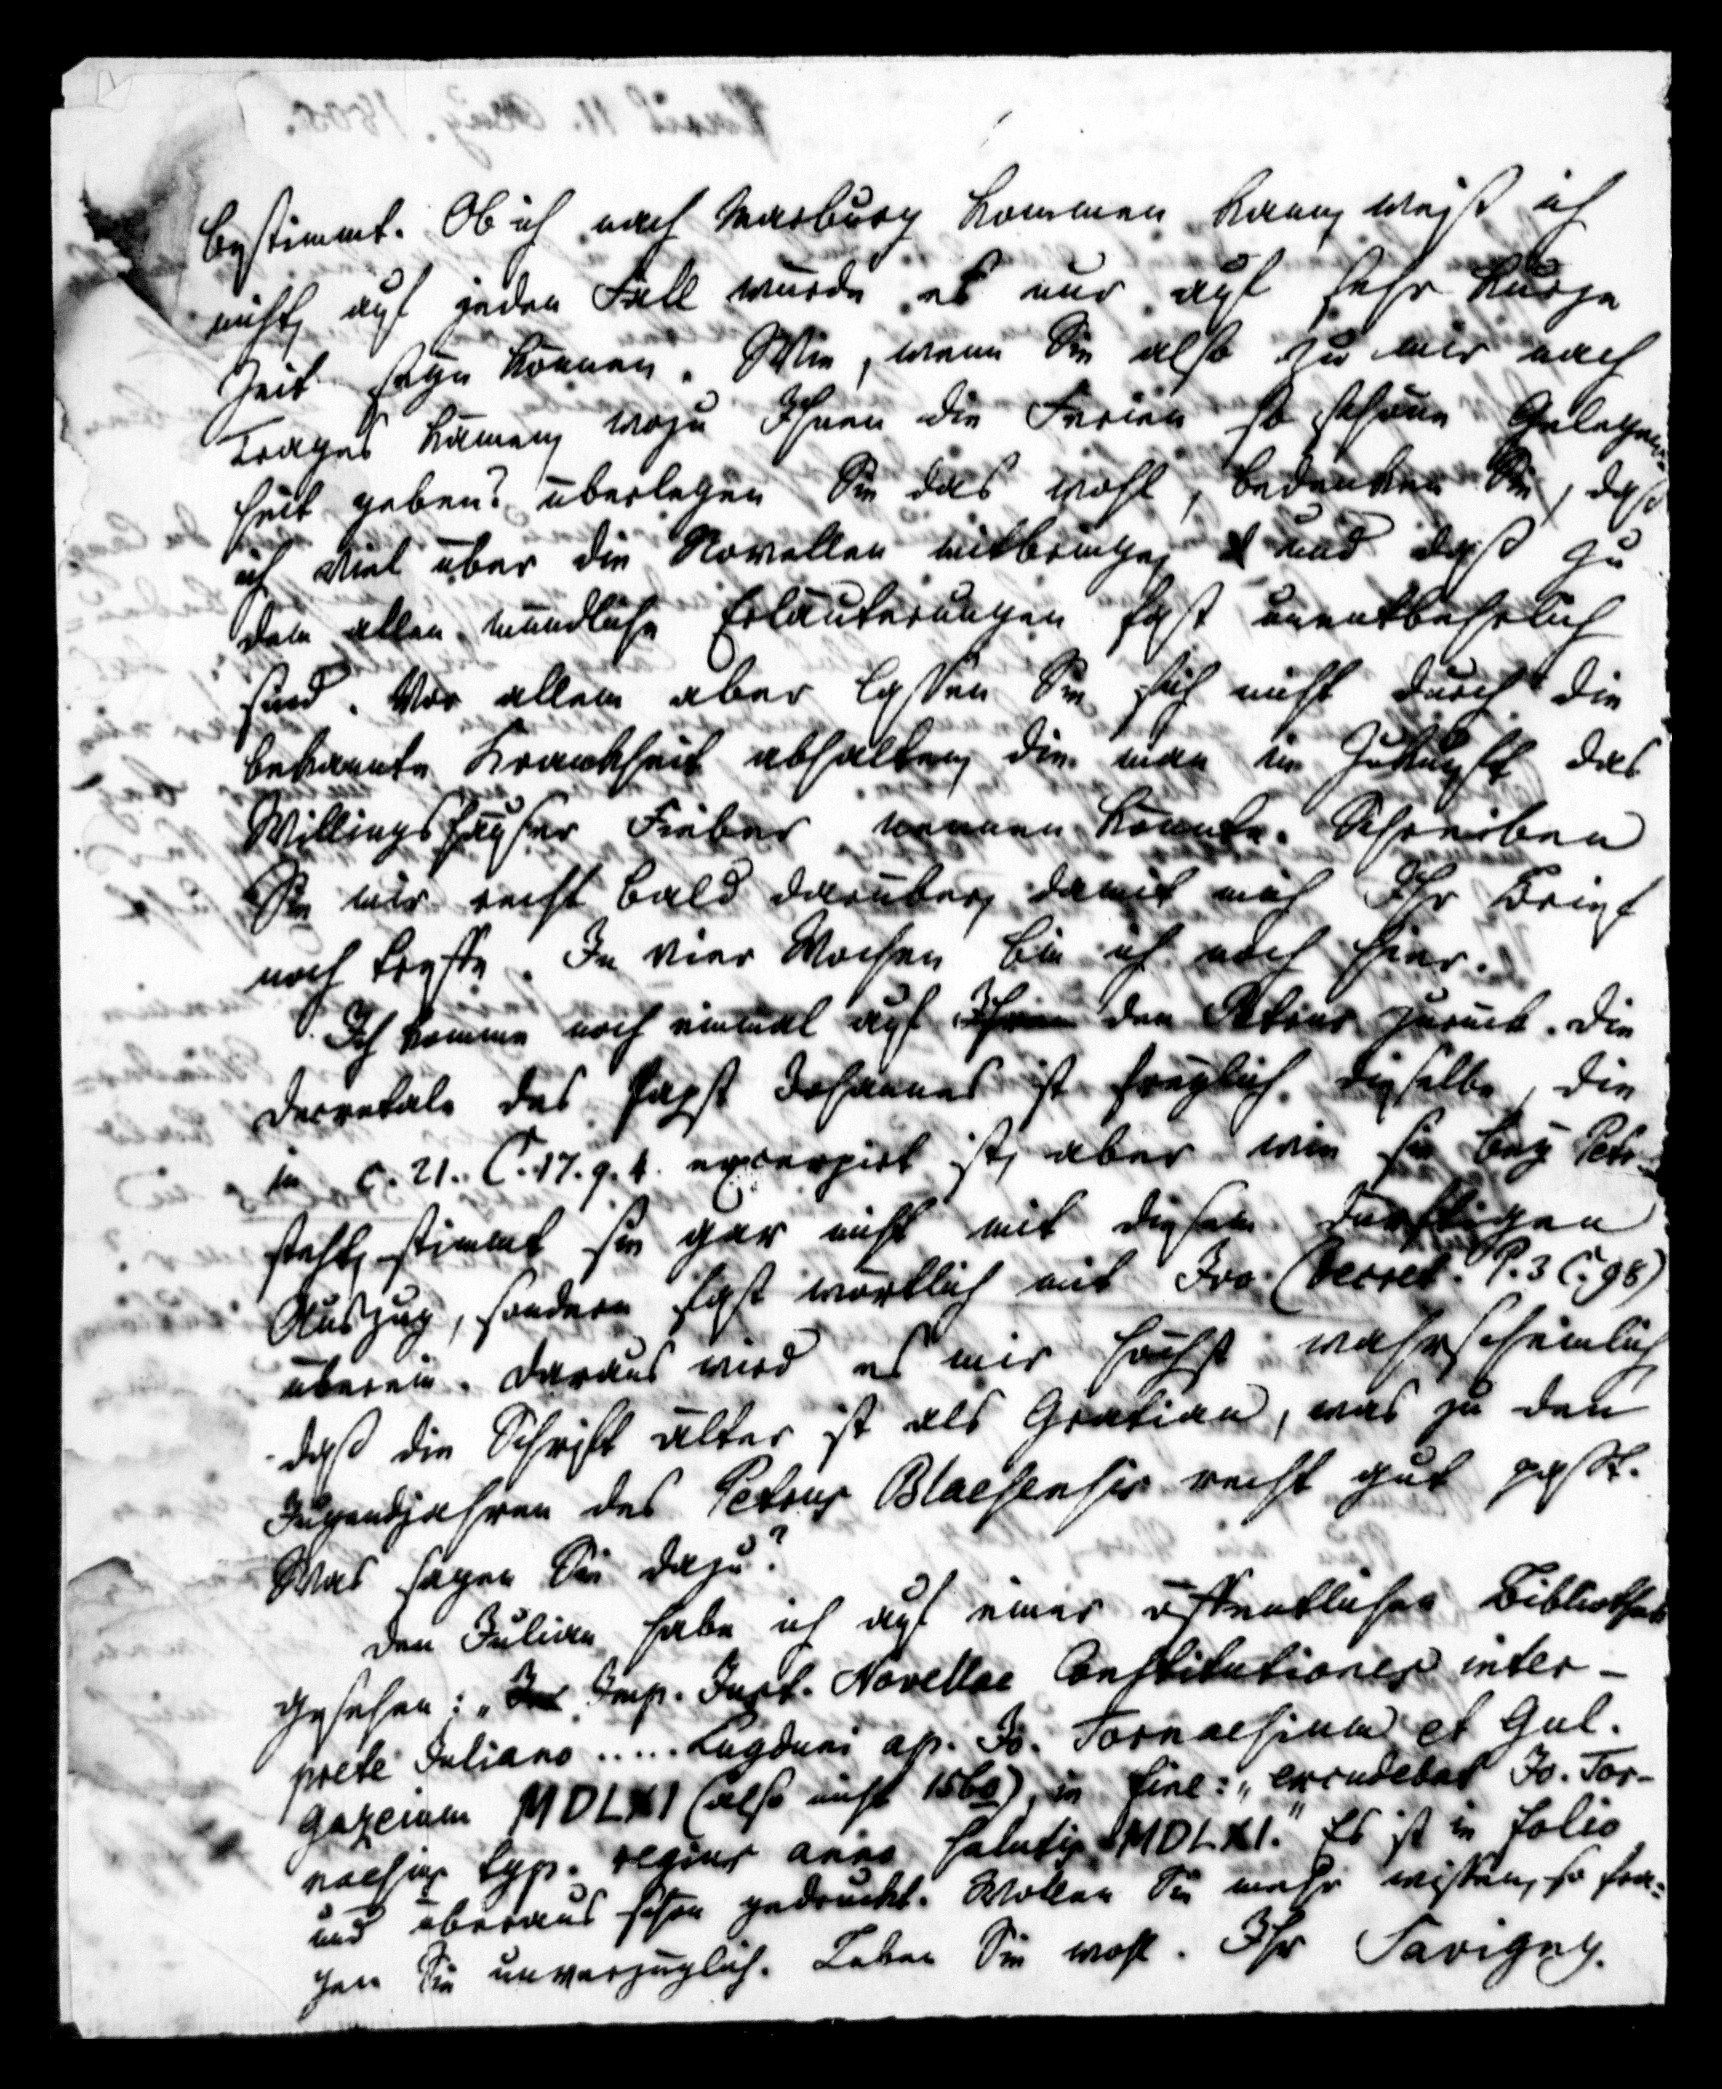 bestimmt. Ob ich nach Marburg kommen kann, weiß ich
nicht, auf jeden Fall würde es nur auf sehr kurze
Zeit seyn können. Wie, wenn Sie also zu mir nach
Trages kämen, wozu Ihnen die Ferien so schöne Gelegen-
heit geben? überlegen Sie das wohl, bedenken Sie, daß
ich viel über die Novellen mitbringe, und daß zu
dem allen mündliche Erläuterungen fast unentbehrlich
sind. Vor allem aber lassen Sie sich nicht durch die
bekannte Krankheit abhalten, die man in Zukunft das
Willingshäuser Fieber nennen könnte. Schreiben
Sie mir recht bald darüber, damit mich Ihr Brief
noch treffe. In vier Wochen bin ich noch hier.
Ich komme noch einmal auf den Petrus zurück. Die
Decretale des Papst Johannes ist freylich dieselbe, die
in c. 21. C. 17. q. 4. excerpirt ist, aber wie sie bey Petr.
steht, stimmt sie gar nicht mit diesem dürftigen
Auszug, sondern fast wörtlich mit Ivo (Decret. P. 3 C. 98)
überein. Daraus wird es mir höchst wahrscheinlich
daß die Schrift älter ist als Gratian, was zu den
Jugendjahren des Petrus Blaesensis recht gut paßt.
Was sagen Sie dazu?
Den Julian habe ich auf einer öffentlichen Bibliothek
gesehen: „Imp. Just. Novellae Constitutiones inter-
prete Juliano ..... Lugduni ap. Jo. Tornaesium et Gul.
Gazeium MDLXI (also nicht 1560), in fine: „excudebat Jo. Tor-
naesius typ. regius anno salutis MDLXI." Es ist in folio
und überaus schön gedruckt. Wollen Sie mehr wissen, so fra-
gen Sie unverzüglich. Leben Sie wohl. Ihr Savigny.